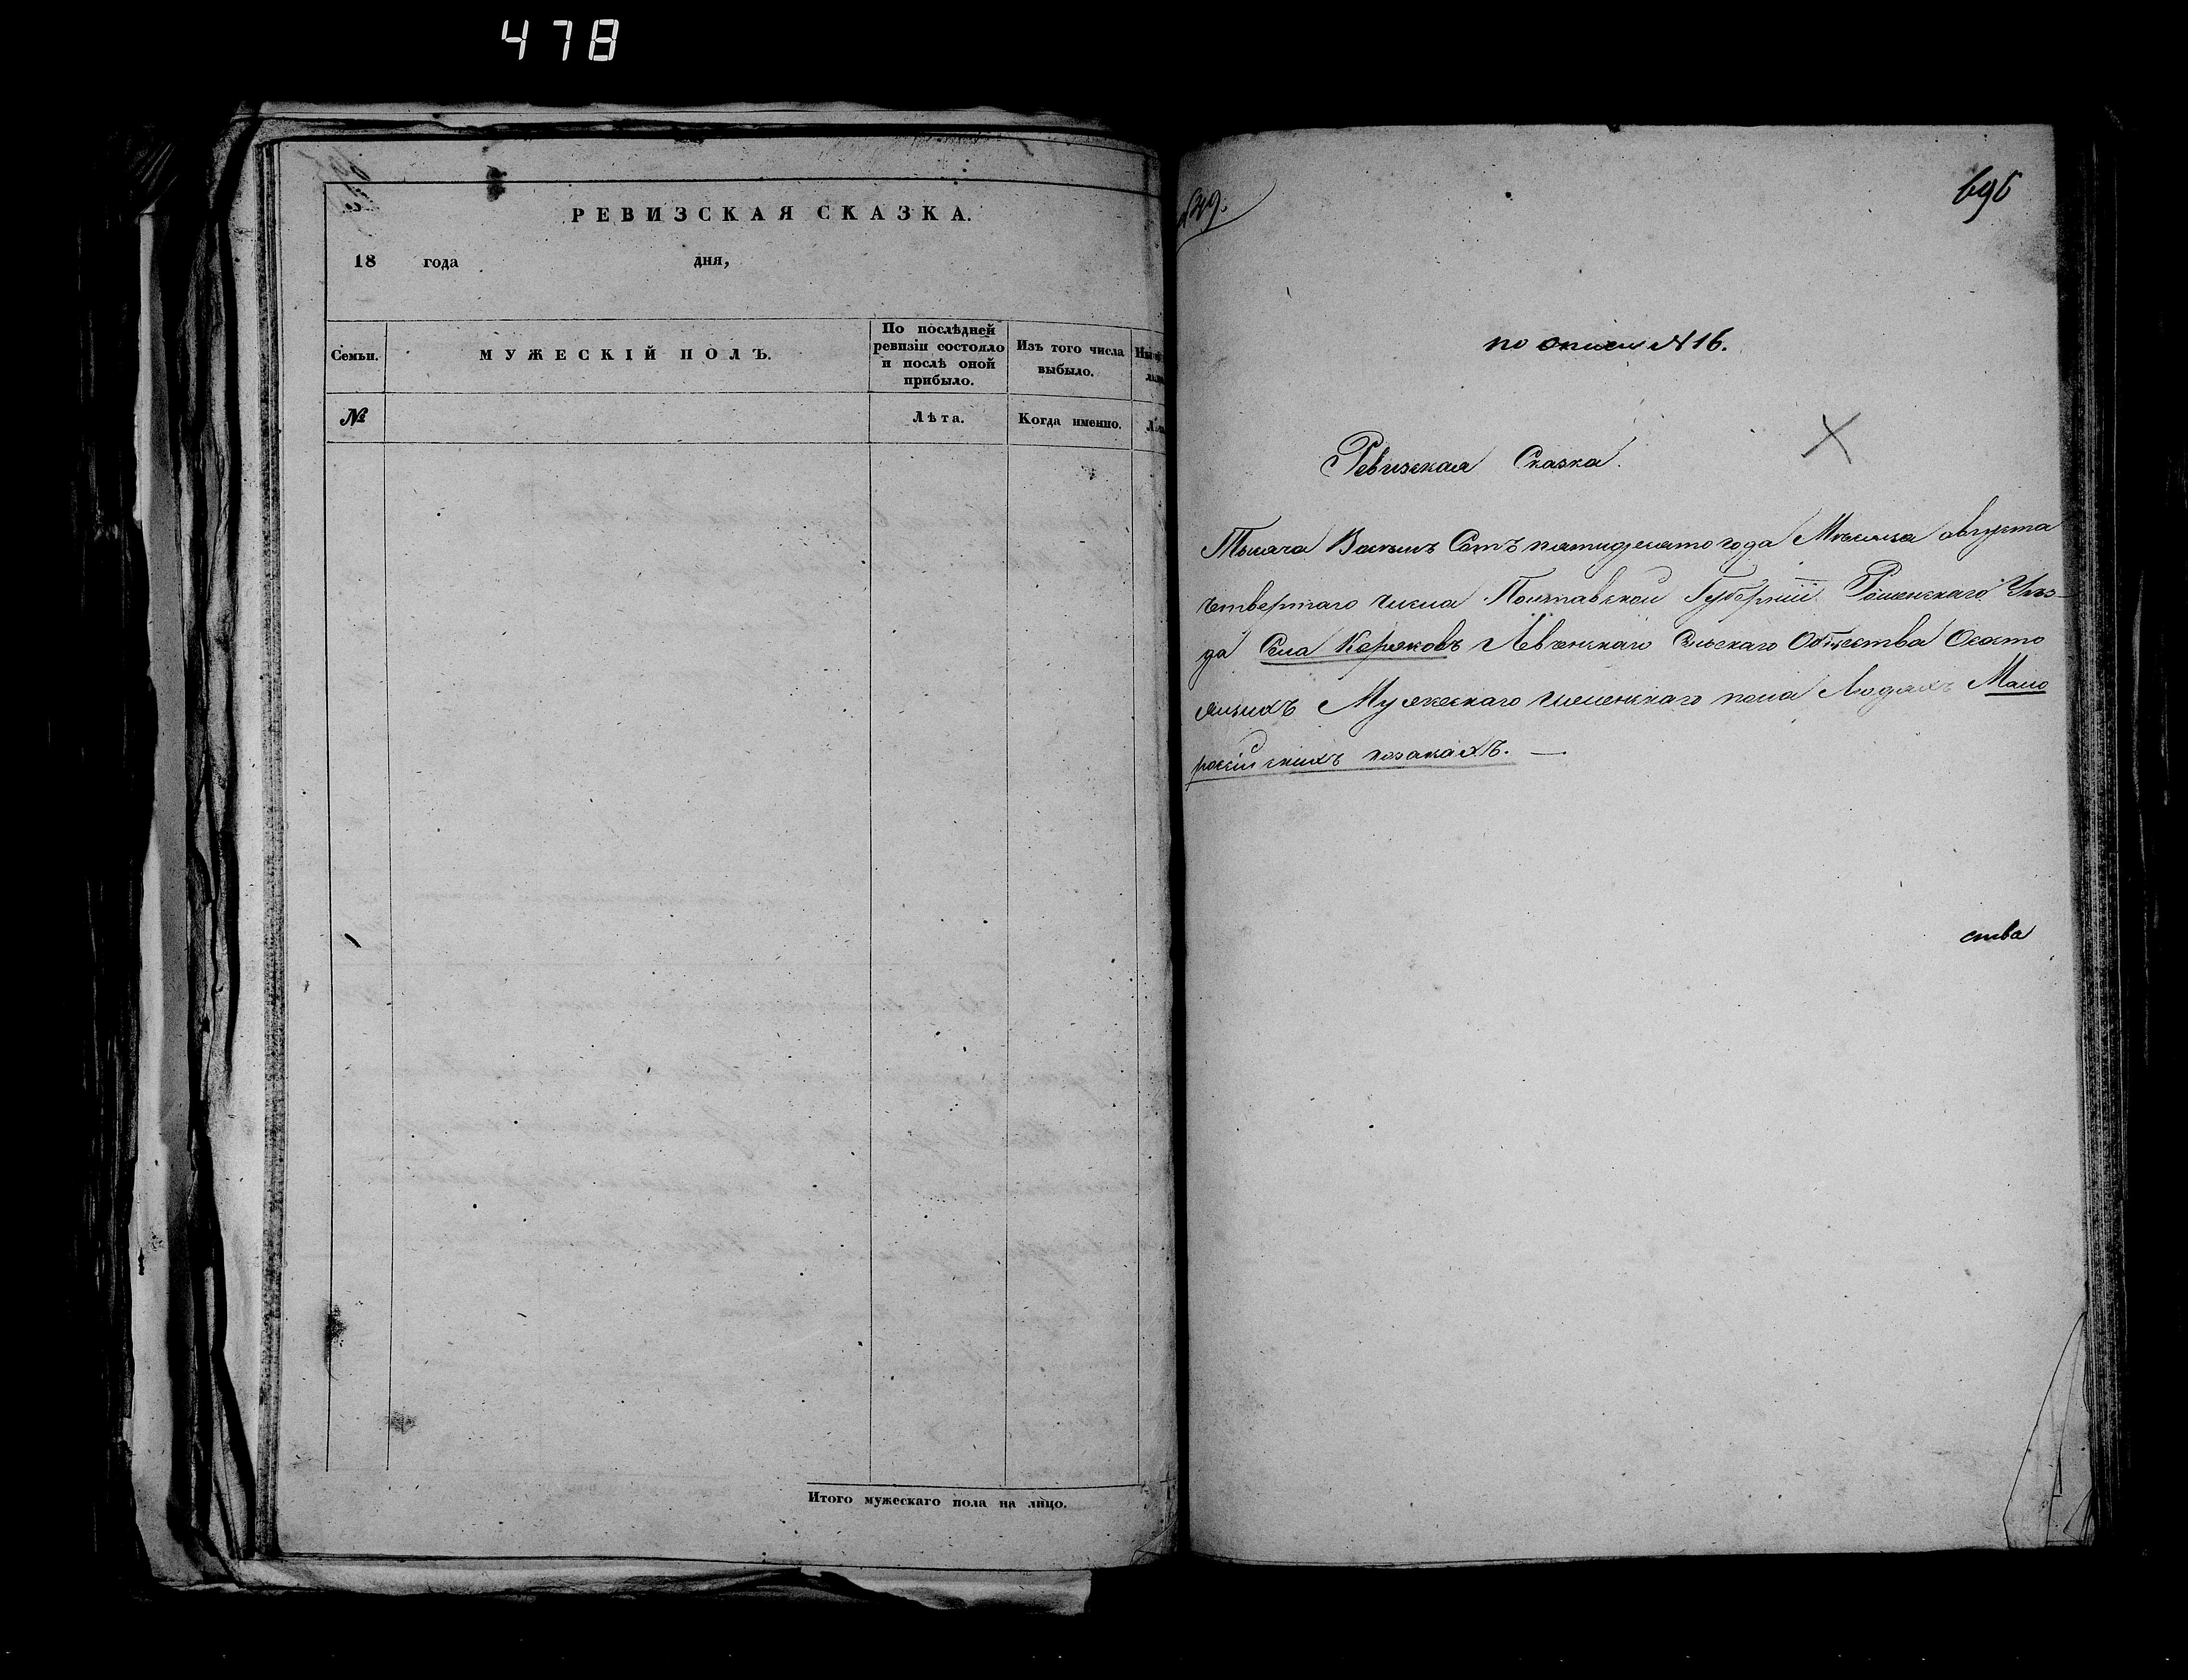 478
РЕВИЗСКАЯ СКАЗКА.
18 года дня,
Семьи.
МУЖЕСКІЙ ПОЛЪ.
По послѣдней ревизіи состояло и послѣ оной прибыло.
Изъ того числа выбыло.
№
Лѣта.
Когда именно.
Итого мужескаго пола на лицо.
695
по описи №16.
Ревизская Сказка.
Тысяча Восемь Сотъ пятидесято года Мѣсяца августа
четвертаго числа Полтавской Губерніи Роменскаго Уѣз-
да Села Коряковъ Левченскаго Сельскаго Общества Ососто
ящихъ Мужескаго и женскаго пола Людяхъ Мало
россійскихъ козакахъ. —
ства